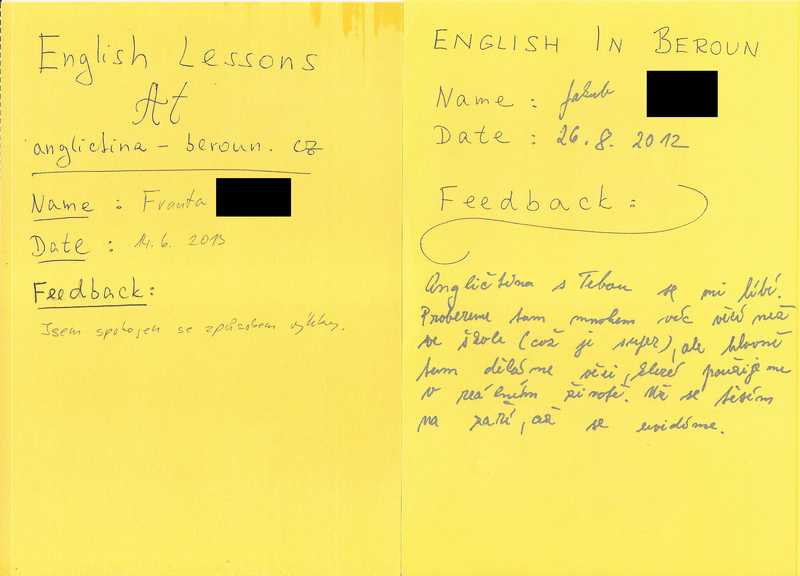 English Lessons
At
anglictina - beroun. cz
Name : Franta
Date : 14. 6. 2013
Feedback:
Jsem spokojen se způsobem výuky.
ENGLISH IN BEROUN
Name : Jakub
Date : 26. 8. 2012
Feedback :
Angličtina s Tebou se mi líbí.
Probereme tam mnohem víc věcí než
ve škole (což je super), ale hlavně
tam děláme věci, které použijeme
v reálném životě. Už se těším
na září, až se uvidíme.